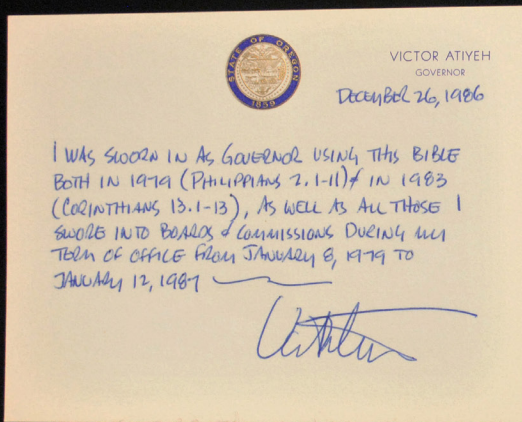 STATE OF OREGON
1859
VICTOR ATIYEH
GOVERNOR
DECEMBER 26, 1986
I WAS SWORN IN AS GOVERNOR USING THIS BIBLE
BOTH IN 1979 (PHILIPPIANS 2.1-11) & IN 1983
(CORINTHIANS 13.1-13), AS WELL AS ALL THOSE I
SWORE INTO BOARDS & COMMISSIONS DURING MY
TERM OF OFFICE FROM JANUARY 8, 1979 TO
JANUARY 12, 1987